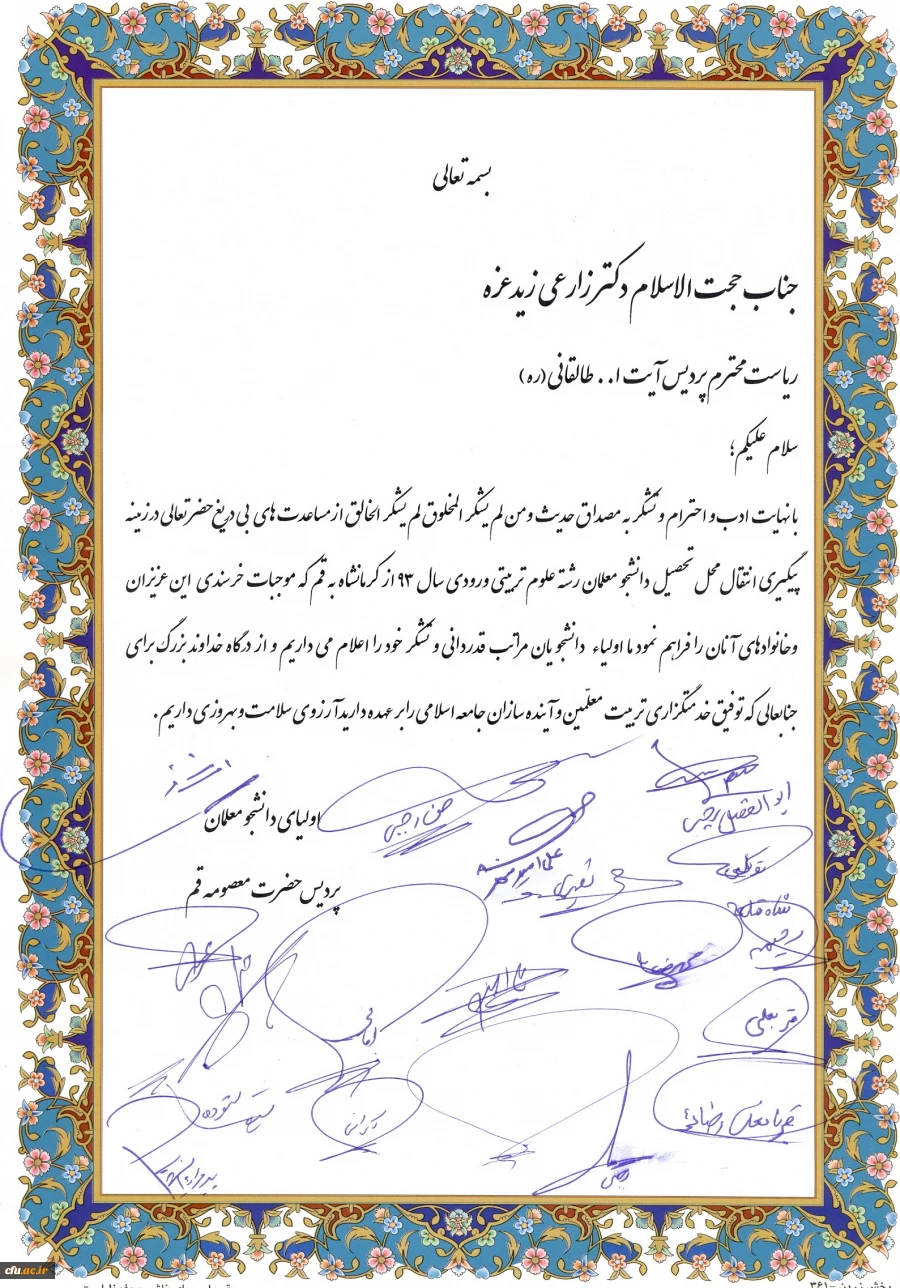 بسمه تعالی
جناب حجت الاسلام دکتر زارعی زید عزه
ریاست محترم پردیس آیت ا.. طالقانی (ره)
سلام علیکم؛
با نهایت ادب و احترام و تشکر به مصداق حدیث و من لم یشکر المخلوق لم یشکر الخالق از مساعدت های بی دریغ حضرتعالی در زمینه
پیگیری انتقال محل تحصیل دانشجو معلمان رشته علوم تربیتی ورودی سال ۹۳ از کرمانشاه به قم که موجبات خرسندی این عزیزان
و خانوادهای آنان را فراهم نمود ما اولیاء دانشجویان مراتب قدردانی و تشکر خود را اعلام می داریم و از درگاه خداوند بزرگ برای
جنابعالی که توفیق خدمتگزاری تربیت معلّمین و آینده سازان جامعه اسلامی را بر عهده دارید آرزوی سلامت و بهروزی داریم.
اولیای دانشجو معلمان
پردیس حضرت معصومه قم
ابوالفضل رجبی
صف رجبی
رحیمه
قربعلی
قربانعلی رضائی
ستوده
cfu.ac.ir
۳۶۱